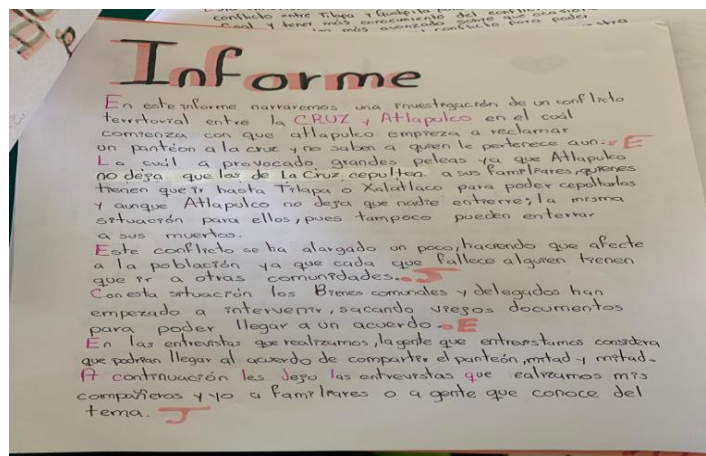 conflicto entre Tilapa y
y tener más conocimiento del
más avanzado sobre que
conflicto para poder
Informe
En este informe narraremos una investigación de un conflicto
territorial entre la CRUZ y Atlapulco en el cuál
comienza con que atlapulco empieza a reclamar
un panteón a la cruz y no saben a quien le pertenece aun. E
Lo cuál a provocado grandes peleas ya que Atlapulco
no deja que los de La Cruz cepulten a sus familiares, quienes
tienen que ir hasta Tilapa o Xalatlaco para poder cepoltarlos
y aunque Atlapulco no deja que nadie entierre; la misma
situación para ellos, pues tampoco pueden enterrar
a sus muertos.
Este conflicto se ha alargado un poco, haciendo que afecte
a la población ya que cada que fallece alguien tienen
que ir a otras comunidades. J
Con esta situación los Bienes comunales y delegados han
empezado a intervenir, sacando viejos documentos
para poder llegar a un acuerdo. E
En las entrevistas que realizamos, la gente que entrevistamos considera
que podrían llegar al acuerdo de compartir el panteón, mitad y mitad.
A continuación les dejo las entrevistas que ealizamos mis
compañeros y yo a familiares o a gente que conoce del
tema. J